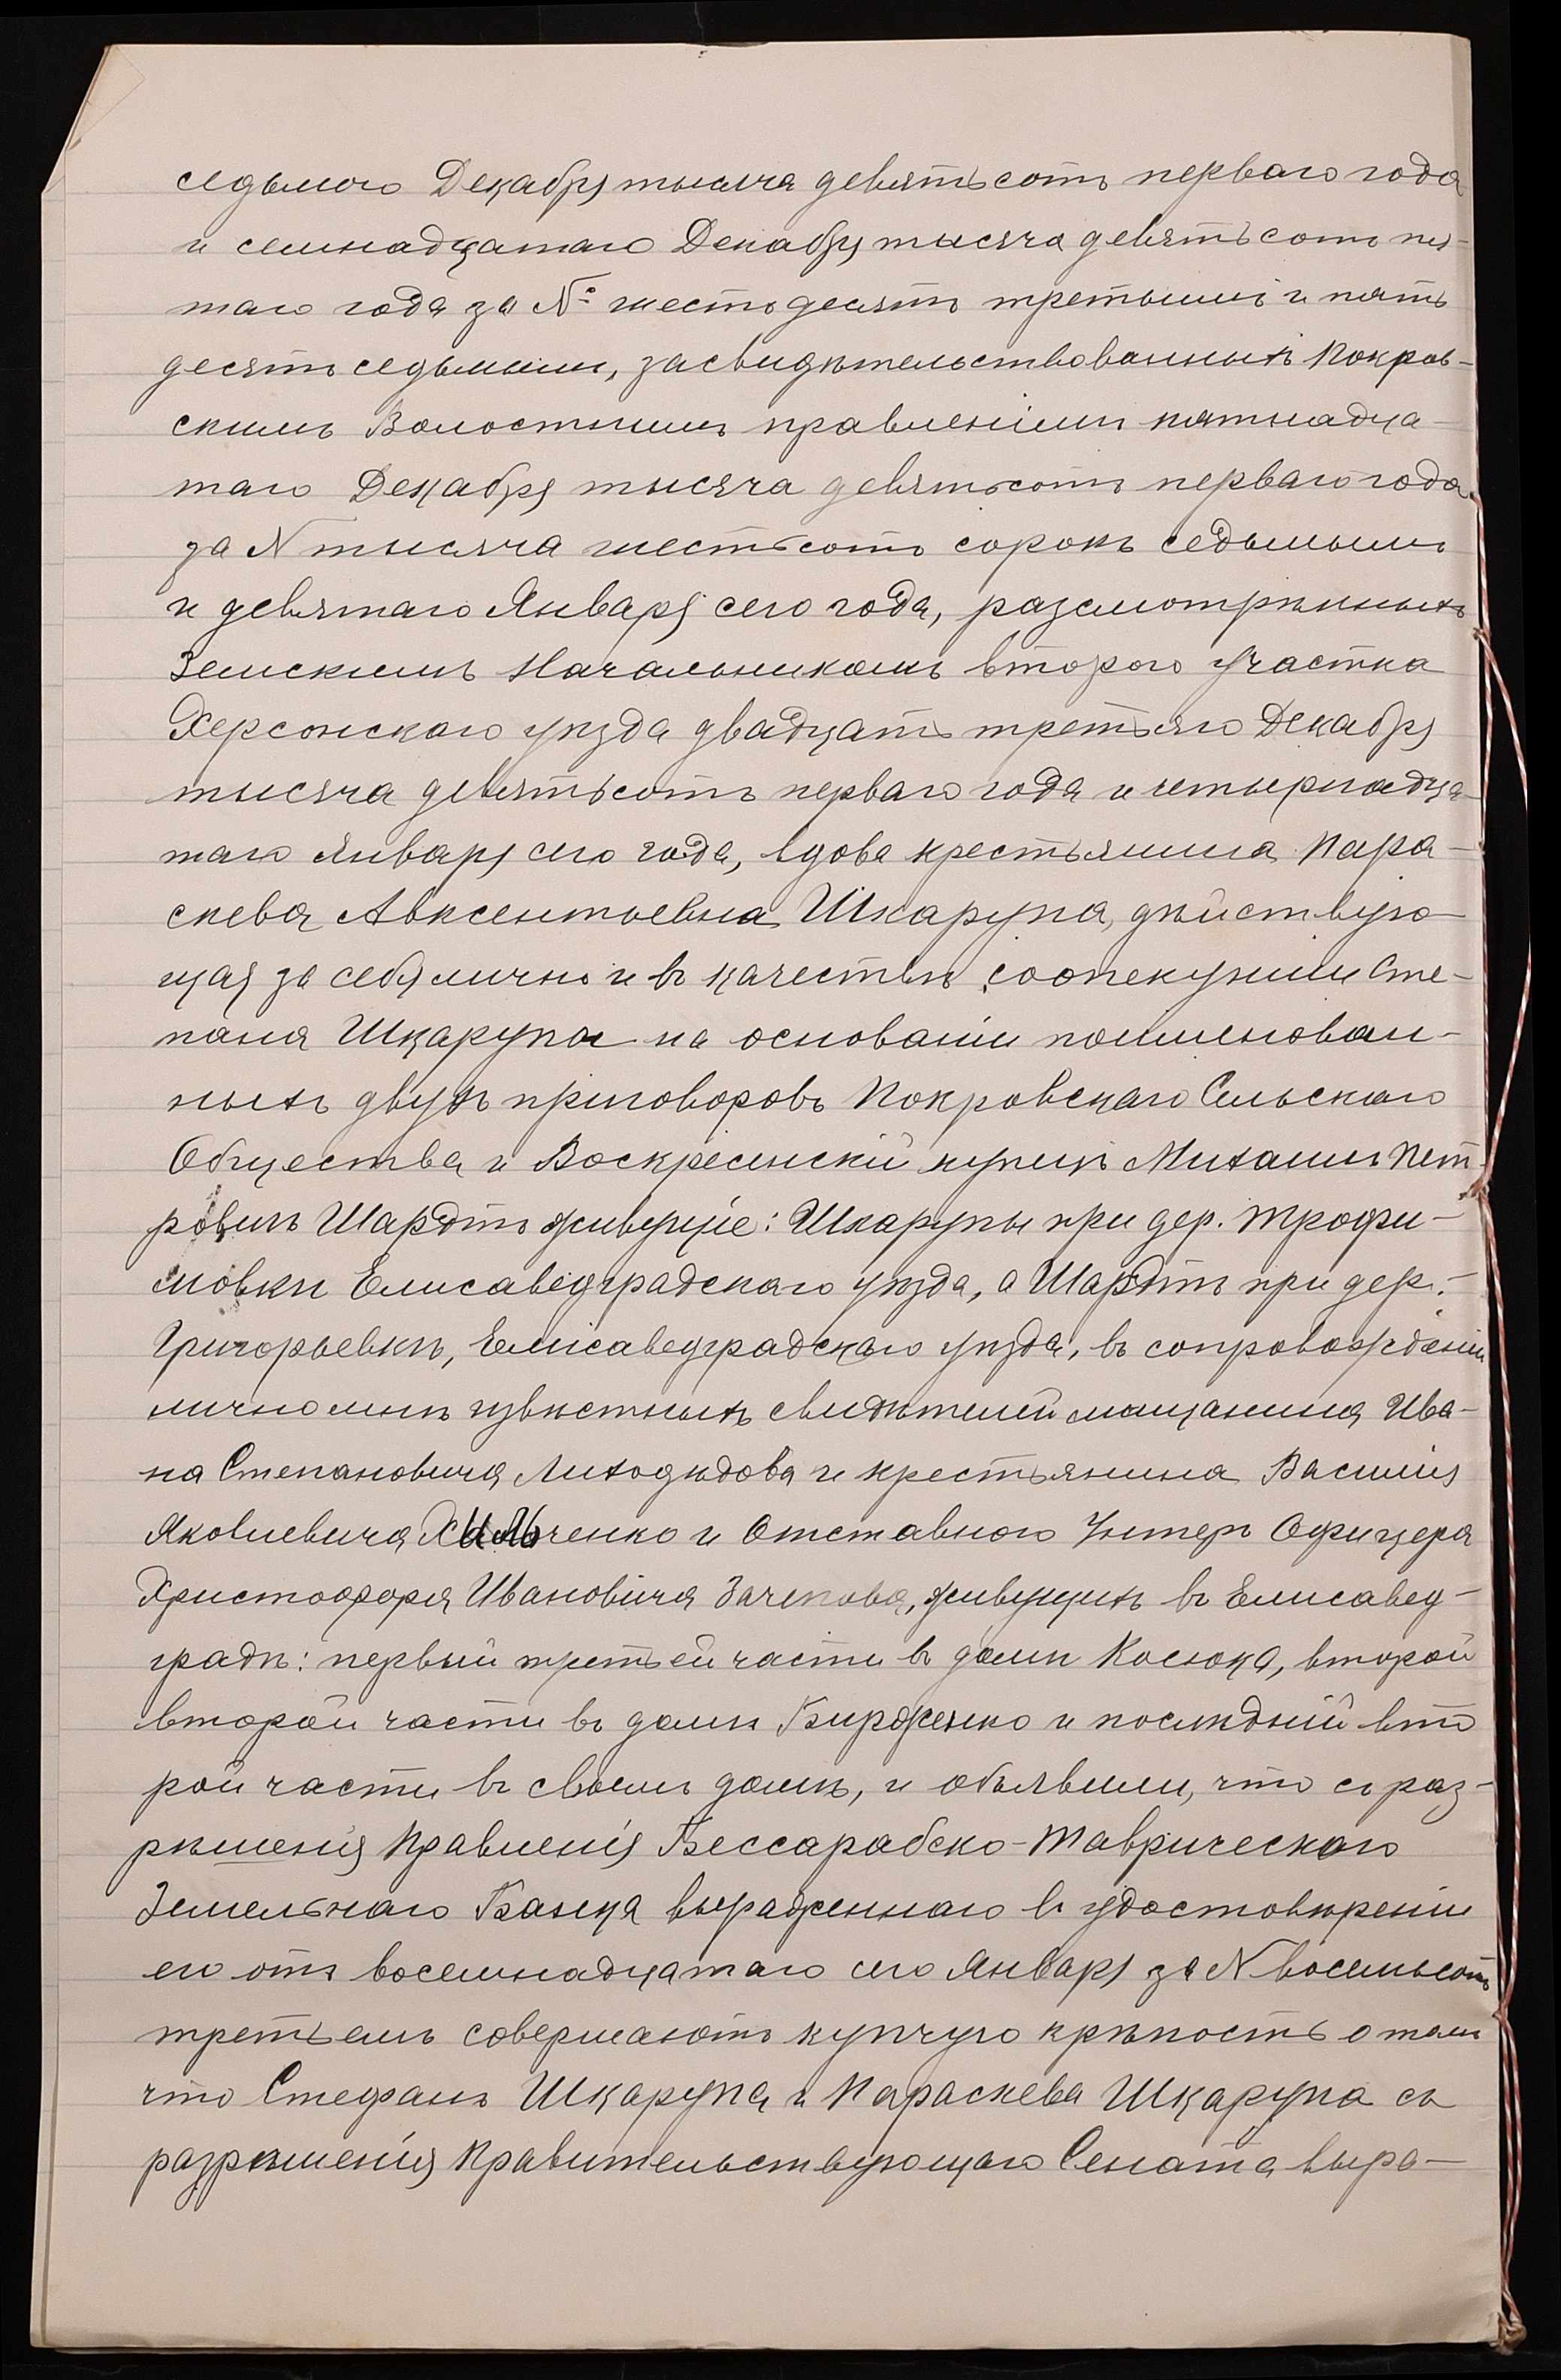 седьмого Декабря тысяча девятьсотъ перваго года
и семнадцатаго Декабря тысяча девятьсотъ пя-
таго года за № шестьдесятъ третьимъ и пять
десятъ седьмымъ, засвидѣтельствованныхъ Покров-
скимъ Волостнымъ правленіемъ пятнадца-
таго Декабря тысяча девятьсотъ перваго года
за N тысяча шестьсотъ сорокъ седьмымъ
и девятаго Января сего года, разсмотрѣнныхъ
Земскимъ Начальникомъ второго участка
Херсонскаго уѣзда двадцать третьяго Декабря
тысяча девятьсотъ перваго года и четырнадца-
таго Января сего года, вдова крестьянина Пара-
скева Авксентьевна Шкарупа, дѣйствую-
щая за себя лично и въ качествѣ соопекунши Сте-
пана Шкарупы на основаніи поименован-
ныхъ двухъ приговоровъ Покровскаго Сельскаго
Общества и Воскресенскій купецъ Михаилъ Пет-
ровичъ Шардтъ живущіе: Шкарупы при дер. Трофи-
мовки Елисаведградскаго уѣзда, а Шардтъ при дер.
Григорьевкѣ, Елисаведградскаго уѣзда, въ сопровожденіи
лично мнѣ извѣстныхъ свидѣтелей мѣщанина Ива-
на Степановича Лиходѣдова и крестьянина Василія
Яковлевича Хильченко и Отставного Унтеръ Офицера
Христофора Ивановича Зачепова, живущихъ въ Елисавед-
градѣ: первый третьей части въ домѣ Косюка, второй
второй части въ домѣ Бирженко и послѣдній вто
рой части въ своемъ домѣ, и объявили, что съ раз-
рѣшенія Правленія Бессарабско-Таврическаго
Земельнаго Банка выраженнаго въ удостовѣреніи
его отъ восемнадцатаго сего Января за N восемьсотъ
третьемъ совершаютъ купчую крѣпость о томъ
что Стефанъ Шкарупа и Параскева Шкарупа съ
разрѣшенія Правительствующаго Сената выра-